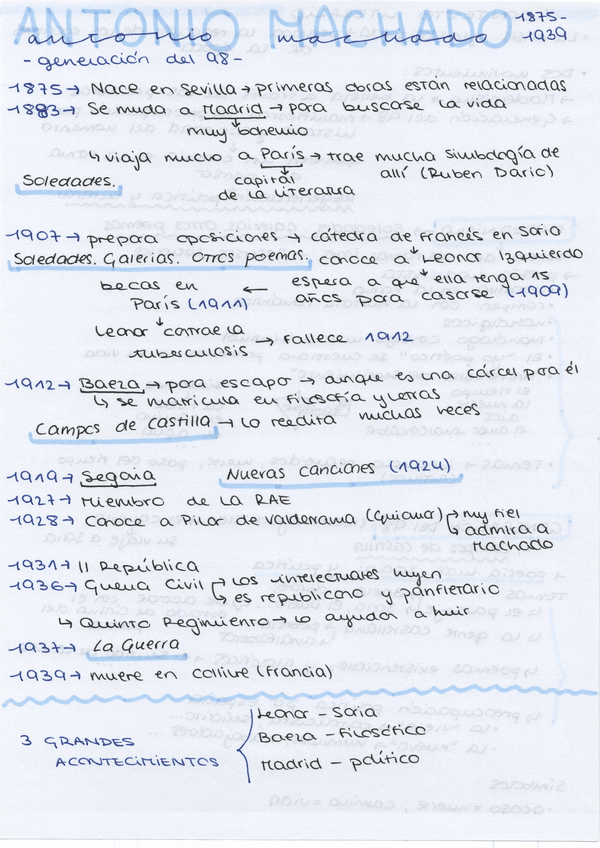 ANTONIO MACHADO 1875-
antonio machado 1939
- generación del 98 -
1875 → Nace en Sevilla → primeras obras están relacionadas
1883 → Se muda a Madrid → para buscarse la vida
muy bohemio
↳ viaja mucho a París → trae mucha simbología de
Soledades. capital allí (Ruben Darío)
de la literatura
1907 → prepara oposiciones → cátedra de Francés en Soria
Soledades. Galerías. Otros poemas. conoce a Leonor Izquierdo
becas en ← espera a que ella tenga 15
París (1911) años para casarse (1909)
Leonor contrae la
tuberculosis → Fallece 1912
1912 → Baeza → para escapar → aunque es una cárcel para él
↳ se matricula en Filosofía y letras
Campos de Castilla → lo reedita muchas veces
1919 → Segovia Nuevas canciones (1924)
1927 → Miembro de LA RAE
1928 → Conoce a Pilar de Valderrama (Guiomar) → muy fiel
↳ admira a
Machado
1931 → II República
1936 → Guerra Civil → Los intelectuales huyen
↳ es republicano y panfletario
↳ Quinto Regimiento → lo ayudan a huir
1937 → La Guerra
1939 → muere en Colliure (Francia)
Leonor - Soria
3 GRANDES Baeza - Filosófico
ACONTECIMIENTOS
Madrid - político